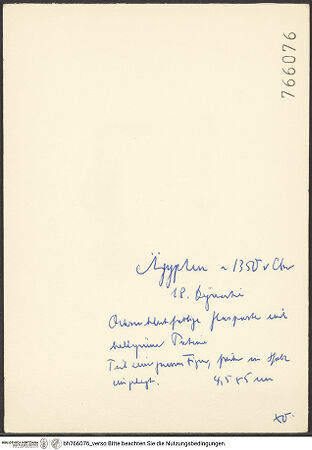 766076
Ägypten ~ 1350 v Chr
18. Dynastie
farbige Glaspaste mit
hellgrüner Patina
Teil einer Figur, in Holz
eingelegt. 4,5 x 5 cm
bh766076_verso Bitte beachten Sie die Nutzungsbedingungen.